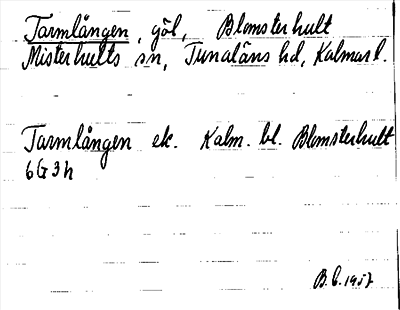 Tarmlången, göl, Blomsterhult
Misterhults sn, Tunaläns hd, Kalmar l.
Tarmlången ek. Kalm. bl. Blomsterhult
6G3h
B.C. 1957